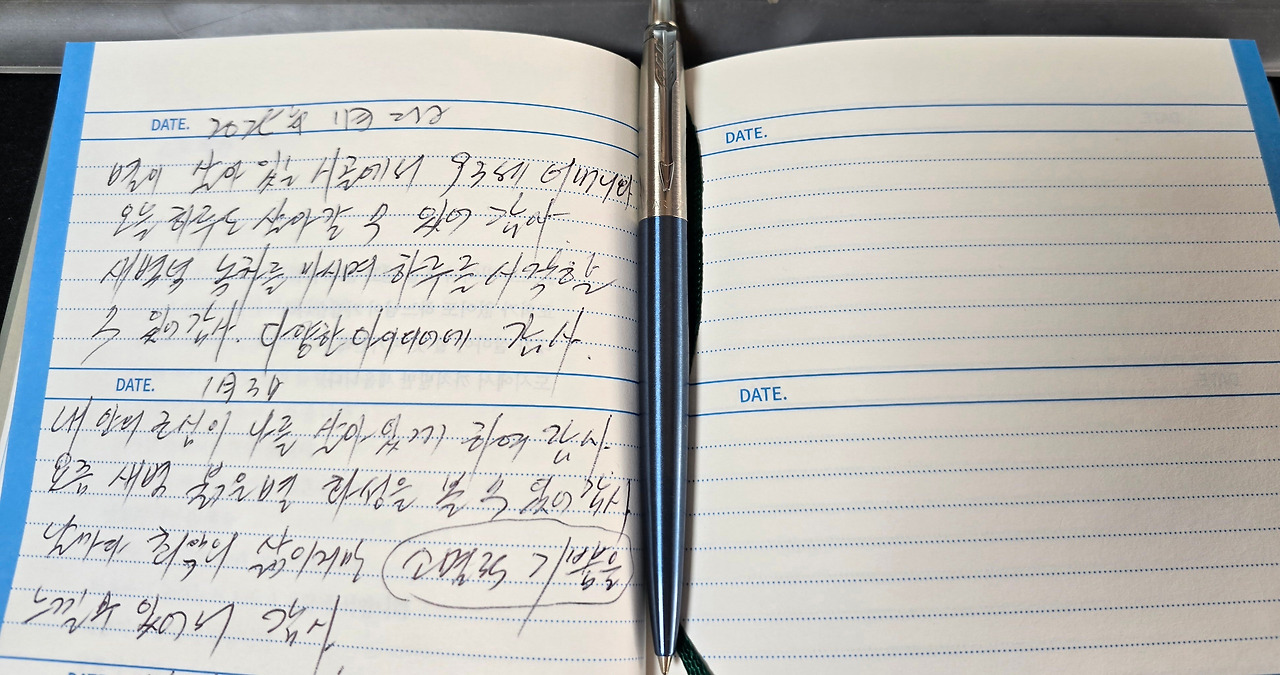 DATE. 1월 2일
별이 살아 있는 시골에서 93세 어머니와
오늘 하루도 살아갈 수 있어 감사.
새벽녘 녹차를 마시며 하루를 시작할
수 있어 감사. 다양한 아이디어에 감사.
DATE. 1월 3일
내 안의 근심이 나를 살아 있게 하여 감사.
요즘 새벽 붉은별 화성을 볼 수 있어 감사.
날마다 의 삶이지만 기쁨을
느낄 수 있으니 감사
DATE.
DATE.